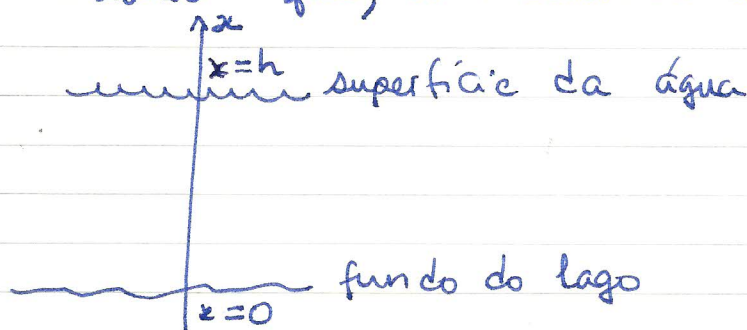 x
x=h superfície da água
fundo do lago
x=0